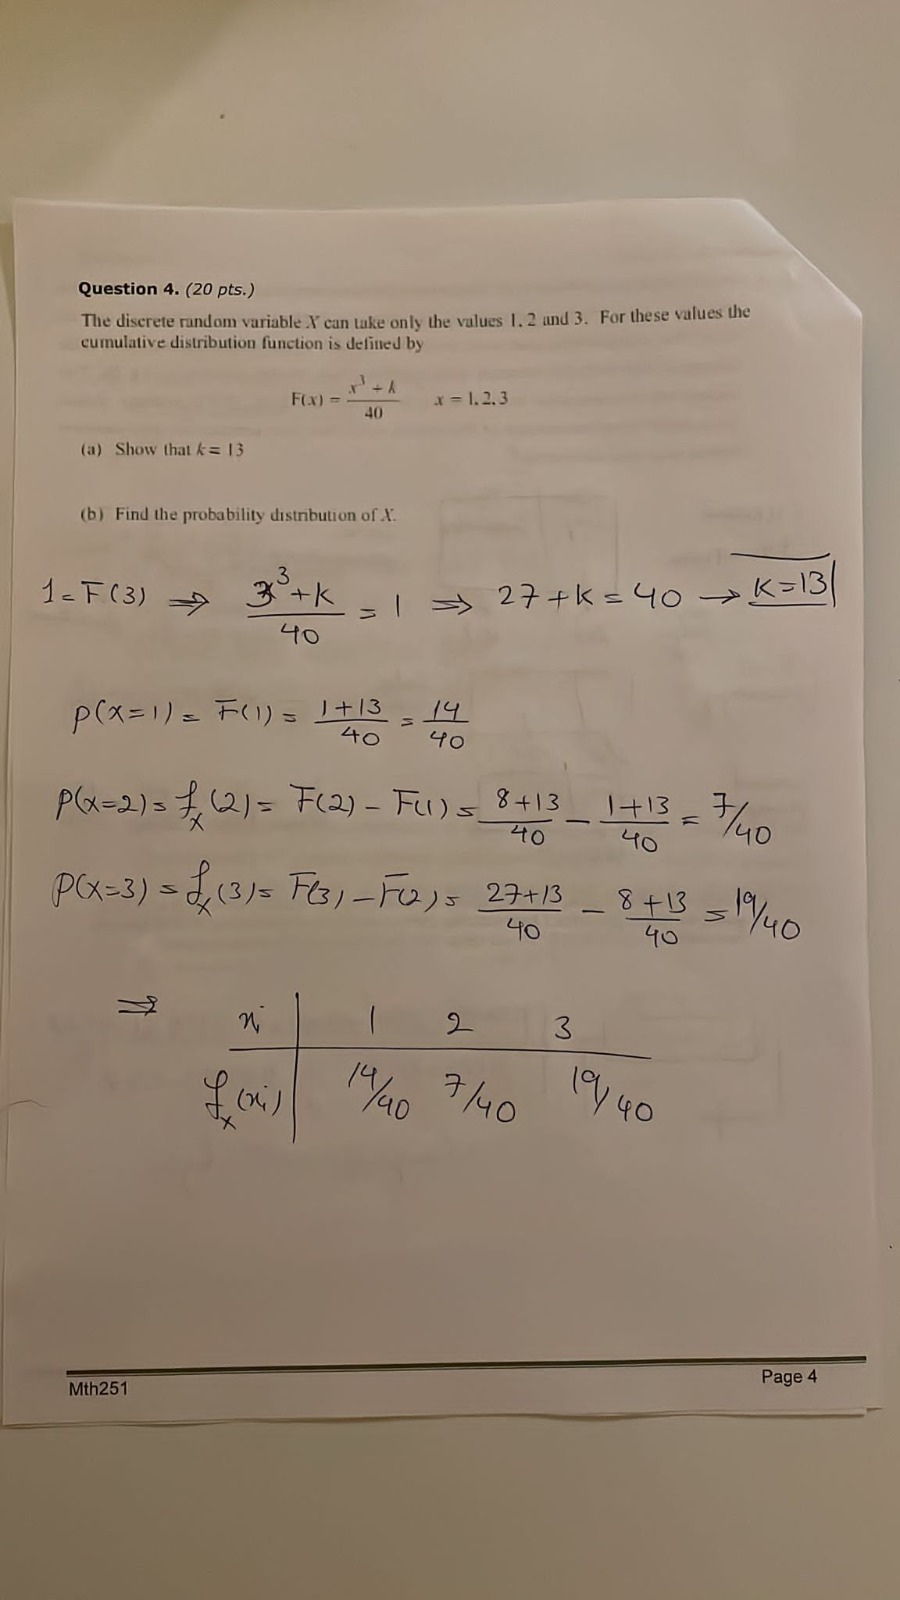 Question 4. (20 pts.)
The discrete random variable X can take only the values 1, 2 and 3. For these values the
cumulative distribution function is defined by
F(x) = (x³ + k)/40    x = 1, 2, 3
(a) Show that k = 13
(b) Find the probability distribution of X.
1 = F(3) ⇒ (3³+k)/40 = 1 ⇒ 27+k = 40 → k=13
p(x=1) = F(1) = (1+13)/40 = 14/40
P(x=2) = f_x(2) = F(2) - F(1) = (8+13)/40 - (1+13)/40 = 7/40
P(x=3) = f_x(3) = F(3) - F(2) = (27+13)/40 - (8+13)/40 = 19/40
⇒ xi | 1 2 3
f_x(xi) | 14/40 7/40 19/40
Mth251
Page 4